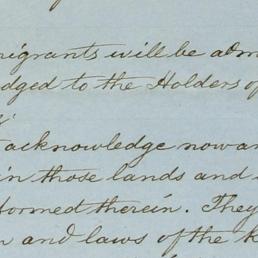 migrants will be adm
dged to the Holders of
acknowledge now an
in those lands and
formed therein. They
and laws of the k